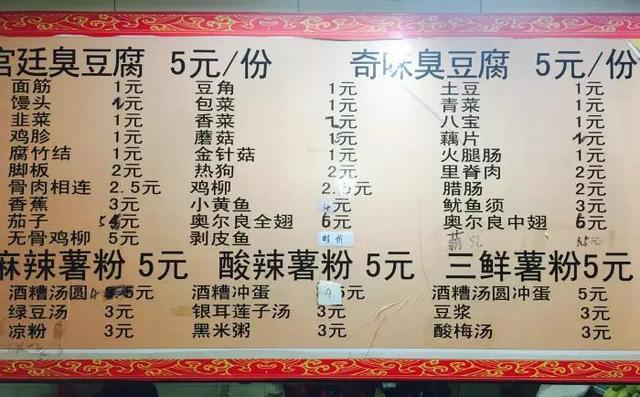 宫廷臭豆腐 5元/份 奇味臭豆腐 5元/份
面筋 1元 豆角 1元 土豆 1元
馒头 元 包菜 1元 青菜 1元
韭菜 1元 香菜 元 八宝 1元
鸡胗 1元 蘑菇 元 藕片 元
腐竹结 1元 金针菇 1元 火腿肠 1元
脚板 2元 热狗 2元 里脊肉 2元
骨肉相连 2.5元 鸡柳 元 腊肠 2元
香蕉 3元 小黄鱼 4元 鱿鱼须 3元
茄子 元 奥尔良全翅 6元 奥尔良中翅 6元
无骨鸡柳 5元 剥皮鱼 时价
麻辣薯粉 5元 酸辣薯粉 5元 三鲜薯粉5元
酒糟汤圆 5元 酒糟冲蛋 4 5元 酒糟汤圆冲蛋 5元
绿豆汤 3元 银耳莲子汤 3元 豆浆 3元
凉粉 3元 黑米粥 3元 酸梅汤 3元